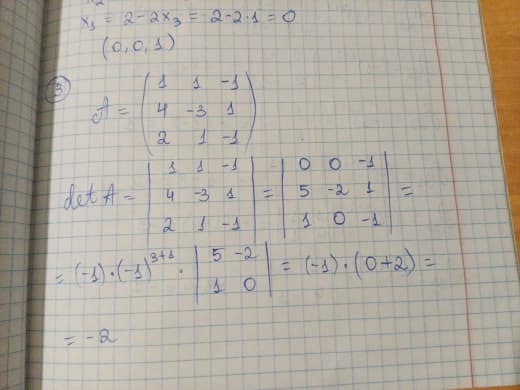 x₁ = 2 - 2x₃ = 2 - 2·1 = 0
(0, 0, 1)
3
A = ( 1 1 -1
4 -3 1
2 1 -1 )
det A = | 1 1 -1
4 -3 1
2 1 -1 | = | 0 0 -1
5 -2 1
1 0 -1 | =
= (-1)·(-1)³⁺¹ · | 5 -2
1 0 | = (-1)·(0+2) =
= -2